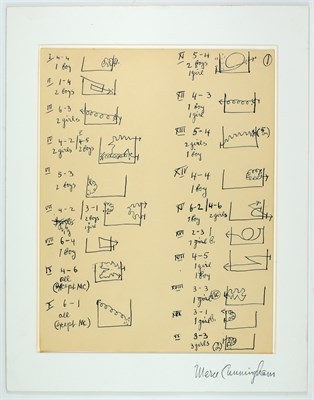 I 4-4
1 boy
II 1-4
2 boys
III 6-3
2 girls
IV 4-2 / 4-5
2 girls 2 boys
5-3
2 boys
4-2 / 3-1
2 boys
1 girl
6-4
1 boy
IX 4-6
all
(except MC)
X 6-1
all
(except MC)
XI 5-4
2 boys
1 girl
1
XII 4-3
1 boy
1 girl
XIII 5-4
2 girls
XIV 4-4
1 boy
XV 6-2 / 4-6
1 boy 2 girls
XVI 2-3
XVII 4-5
1 girl
1 boy
XVIII 3-3
1 girl
XIX 3-1
1 girl
XX 3-3
3 girls (2)
Merce Cunningham